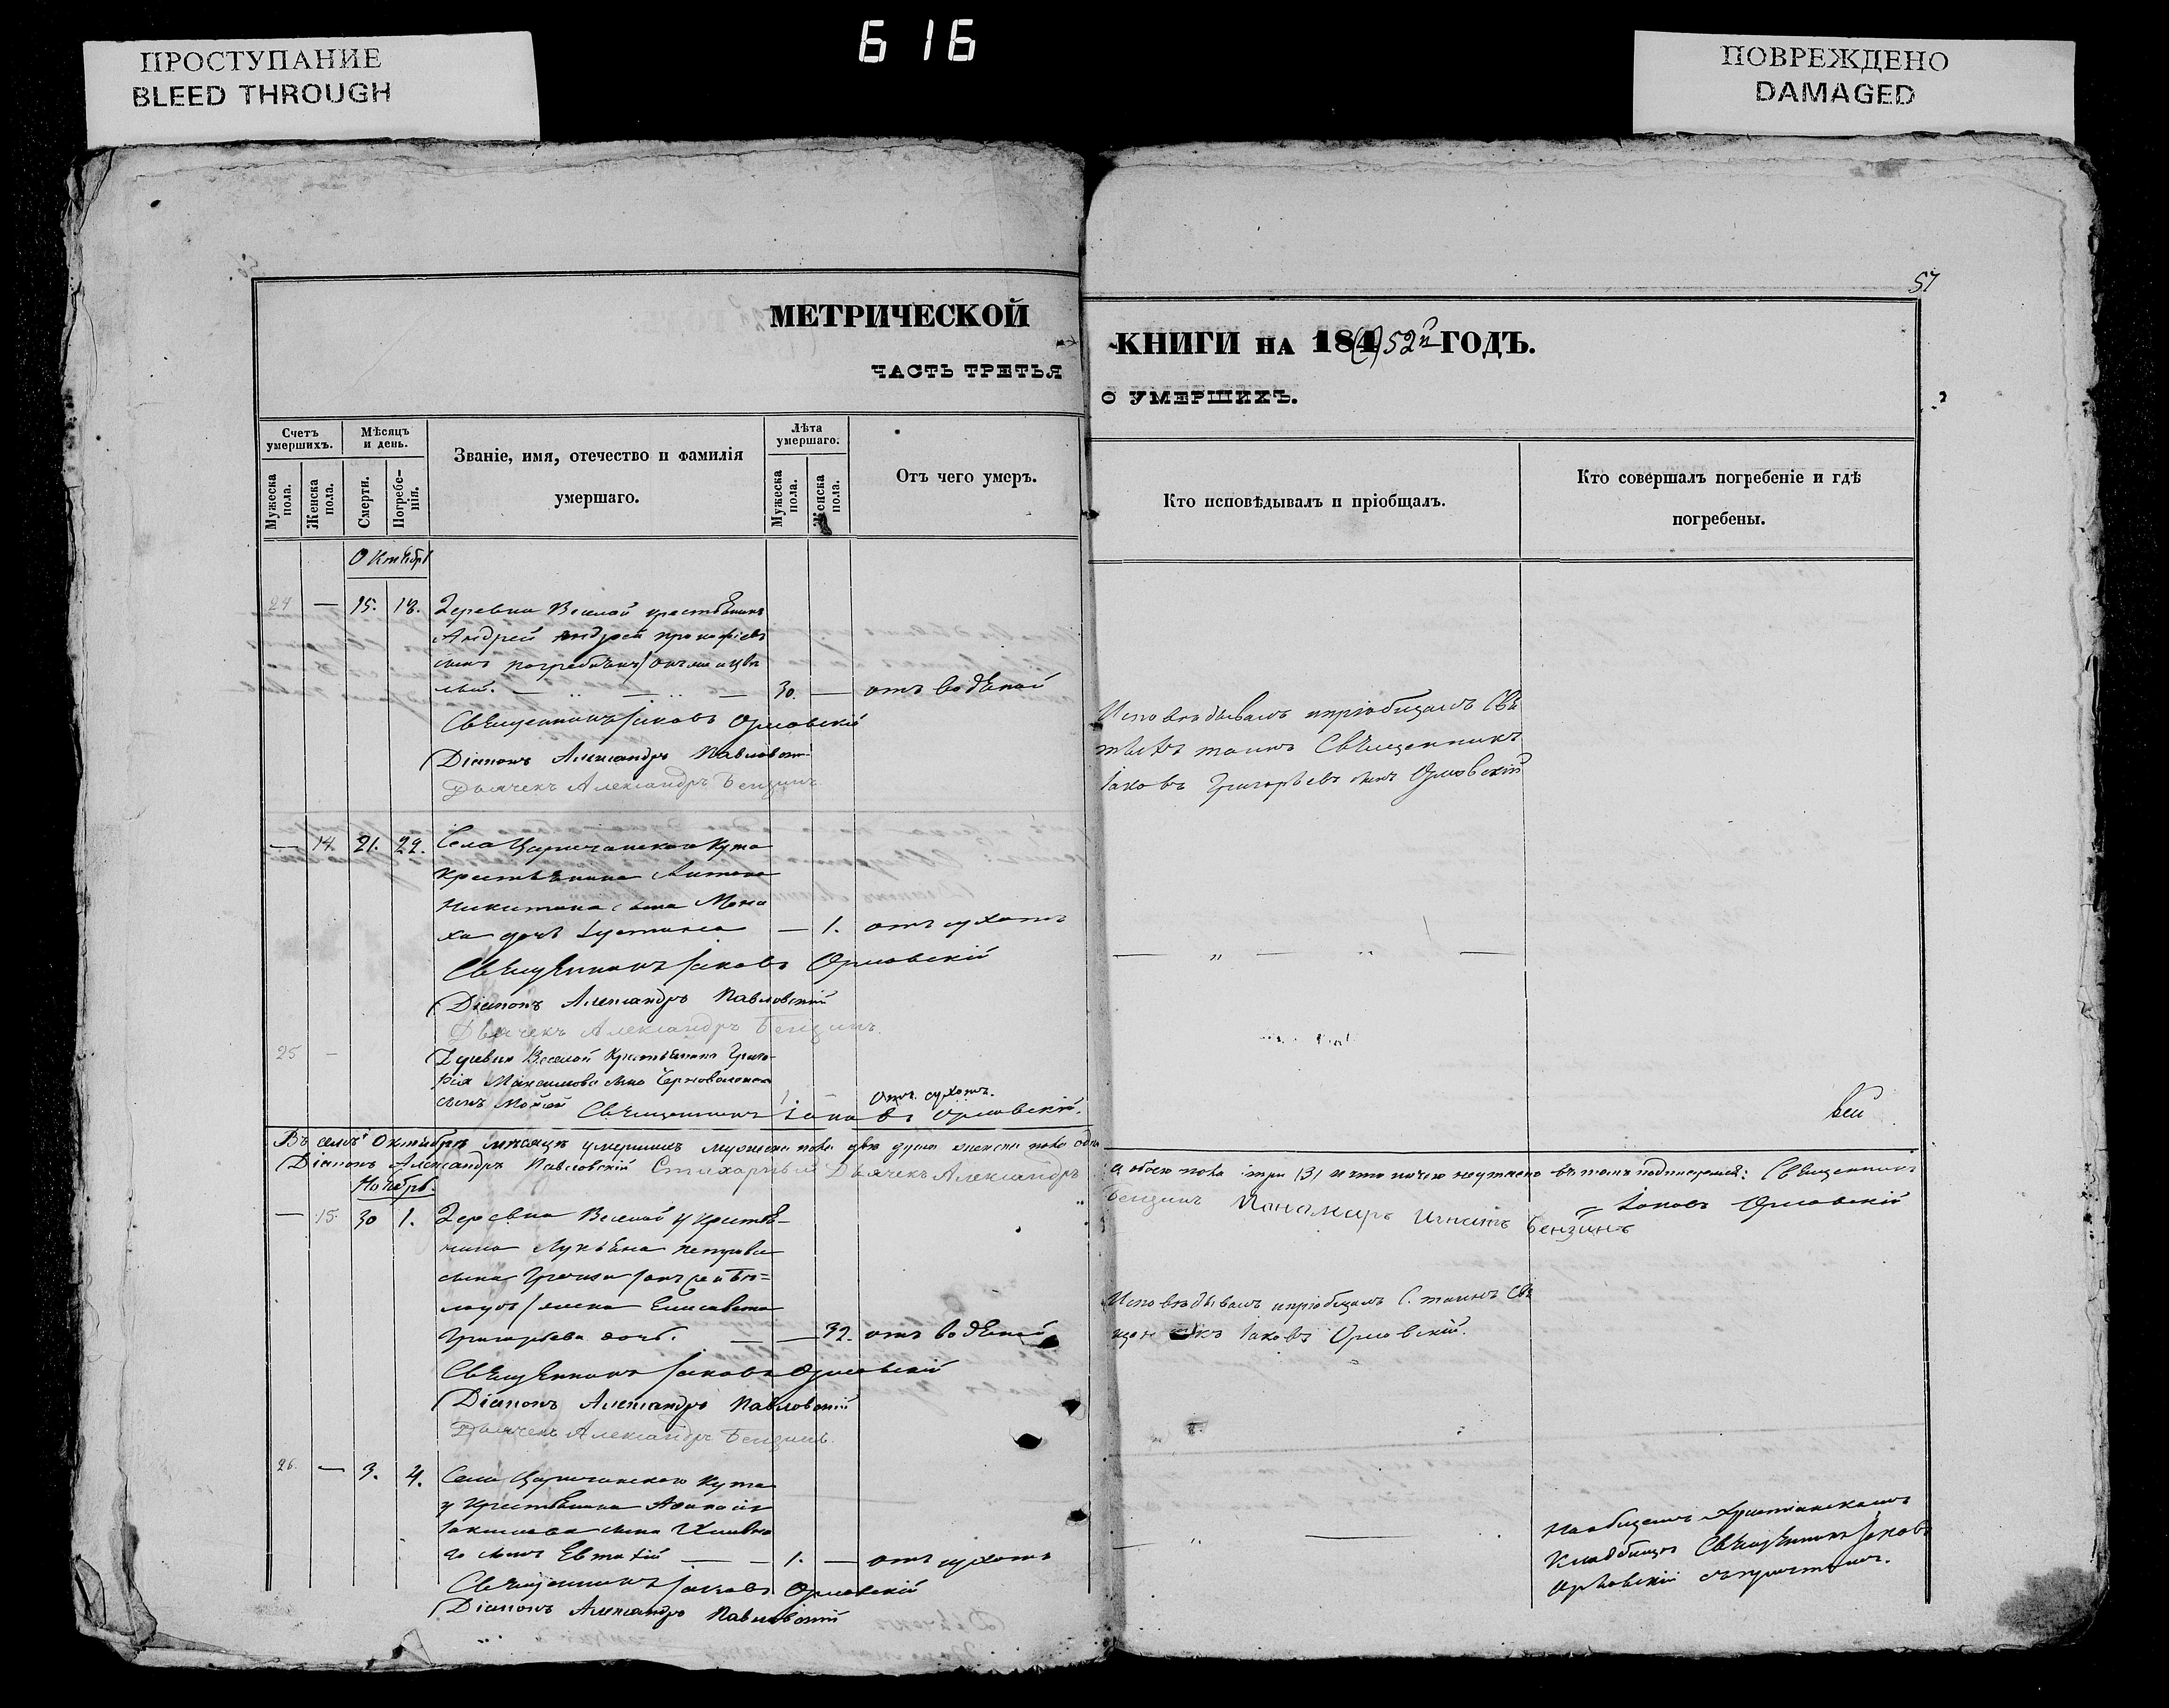 ПРОСТУПАНИЕ
BLEED THROUGH
616
ПОВРЕЖДЕНО
DAMAGED
57
МЕТРИЧЕСКОЙ
КНИГИ НА 184(1)52й ГОДЪ.
ЧАСТЬ ТРЕТЬЯ
О УМЕРШИХЪ.
Счетъ умершихъ.
Мужеска пола.
Женска пола.
Мѣсяцъ и день.
Смерти.
Погребенія.
Званіе, имя, отечество и фамилія
умершаго.
Лѣта умершаго.
Мужеска пола.
Женска пола.
Отъ чего умеръ.
Кто исповѣдывалъ и пріобщалъ.
Кто совершалъ погребеніе и гдѣ
погребены.
Октябрь
24 — 15. 18. Деревни Веселой крестьянинъ
Андрей Андрей прокофіевъ
сынъ
30. — отъ водяной
Священникъ Іаковъ Орловскій
Діаконъ Александръ Павловскій
Дьячекъ Александръ Бензинъ
Исповѣдывалъ и пріобщалъ Свя
таинъ Священникъ
Іаковъ Григорьевъ сынъ Орловскій
— 14. 21. 22. Села Царичанскаго Кута
крестьянина Антона
Никитина сына Мона
ха дочь Іустинія — 1. отъ сухотъ
Священникъ Іаковъ Орловскій
Діаконъ Александръ Павловскій
Дьячекъ Александръ Бензинъ
25 — Деревни Веселой Крестьянина Григо-
рія Максимова сына
сынъ Мойсей 1. — Отъ сухотъ.
Священникъ Іаковъ Орловскій.
Въ семъ Октябрѣ мѣсяцѣ умершихъ мужеска пола двѣ души женска пола одна
а обоего пола три (3) и что ничего неутаено въ томъ подписуемся: Священникъ
Іаковъ Орловскій
Діаконъ Александръ Павловскій Стихарный Дьячекъ Александръ
Бензинъ Пономарь Игнатъ Бензинъ
Ноябрь.
— 15. 30 1. Деревни Веселой у крестья-
нина Лукьяна петрова
сына
жена Елисавета
Григорьева дочь. — — 32. отъ водяной
Священникъ Іаковъ Орловскій
Діаконъ Александръ Павловскій
Дьячекъ Александръ Бензинъ.
Исповѣдывалъ и пріобщалъ С. таинъ Свя
щенникъ Іаковъ Орловскій.
26. — 3. 4. Села Царичанскаго Кута
у крестьянина Афанасія
Іакимова сына
го сынъ Евтихій — 1. — отъ сухотъ
Священникъ Іаковъ Орловскій
Діаконъ Александръ Павловскій
На общемъ Христіанскомъ
Кладбищѣ Священникъ Іаковъ
Орловскій съ причтомъ.